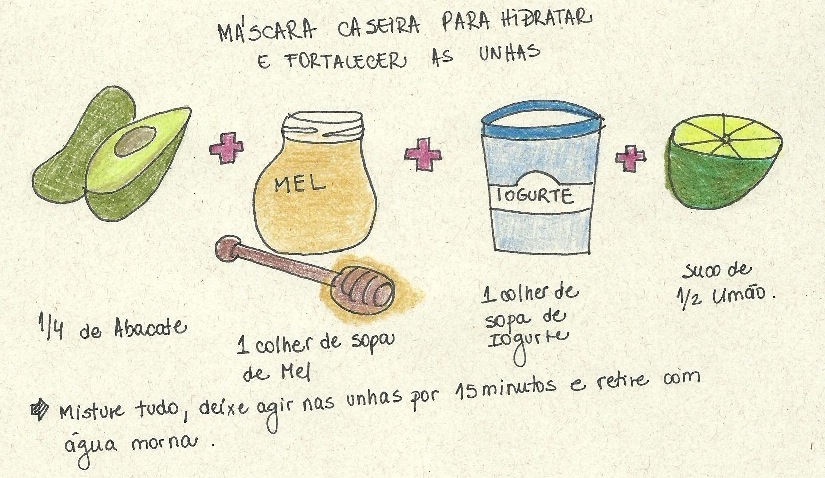 MÁSCARA CASEIRA PARA HIDRATAR
E FORTALECER AS UNHAS
MEL
IOGURTE
1/4 de Abacate
1 colher de sopa
de Mel
1 colher de
sopa de
Iogurte
suco de
1/2 Limão.
Misture tudo, deixe agir nas unhas por 15 minutos e retire com
água morna.